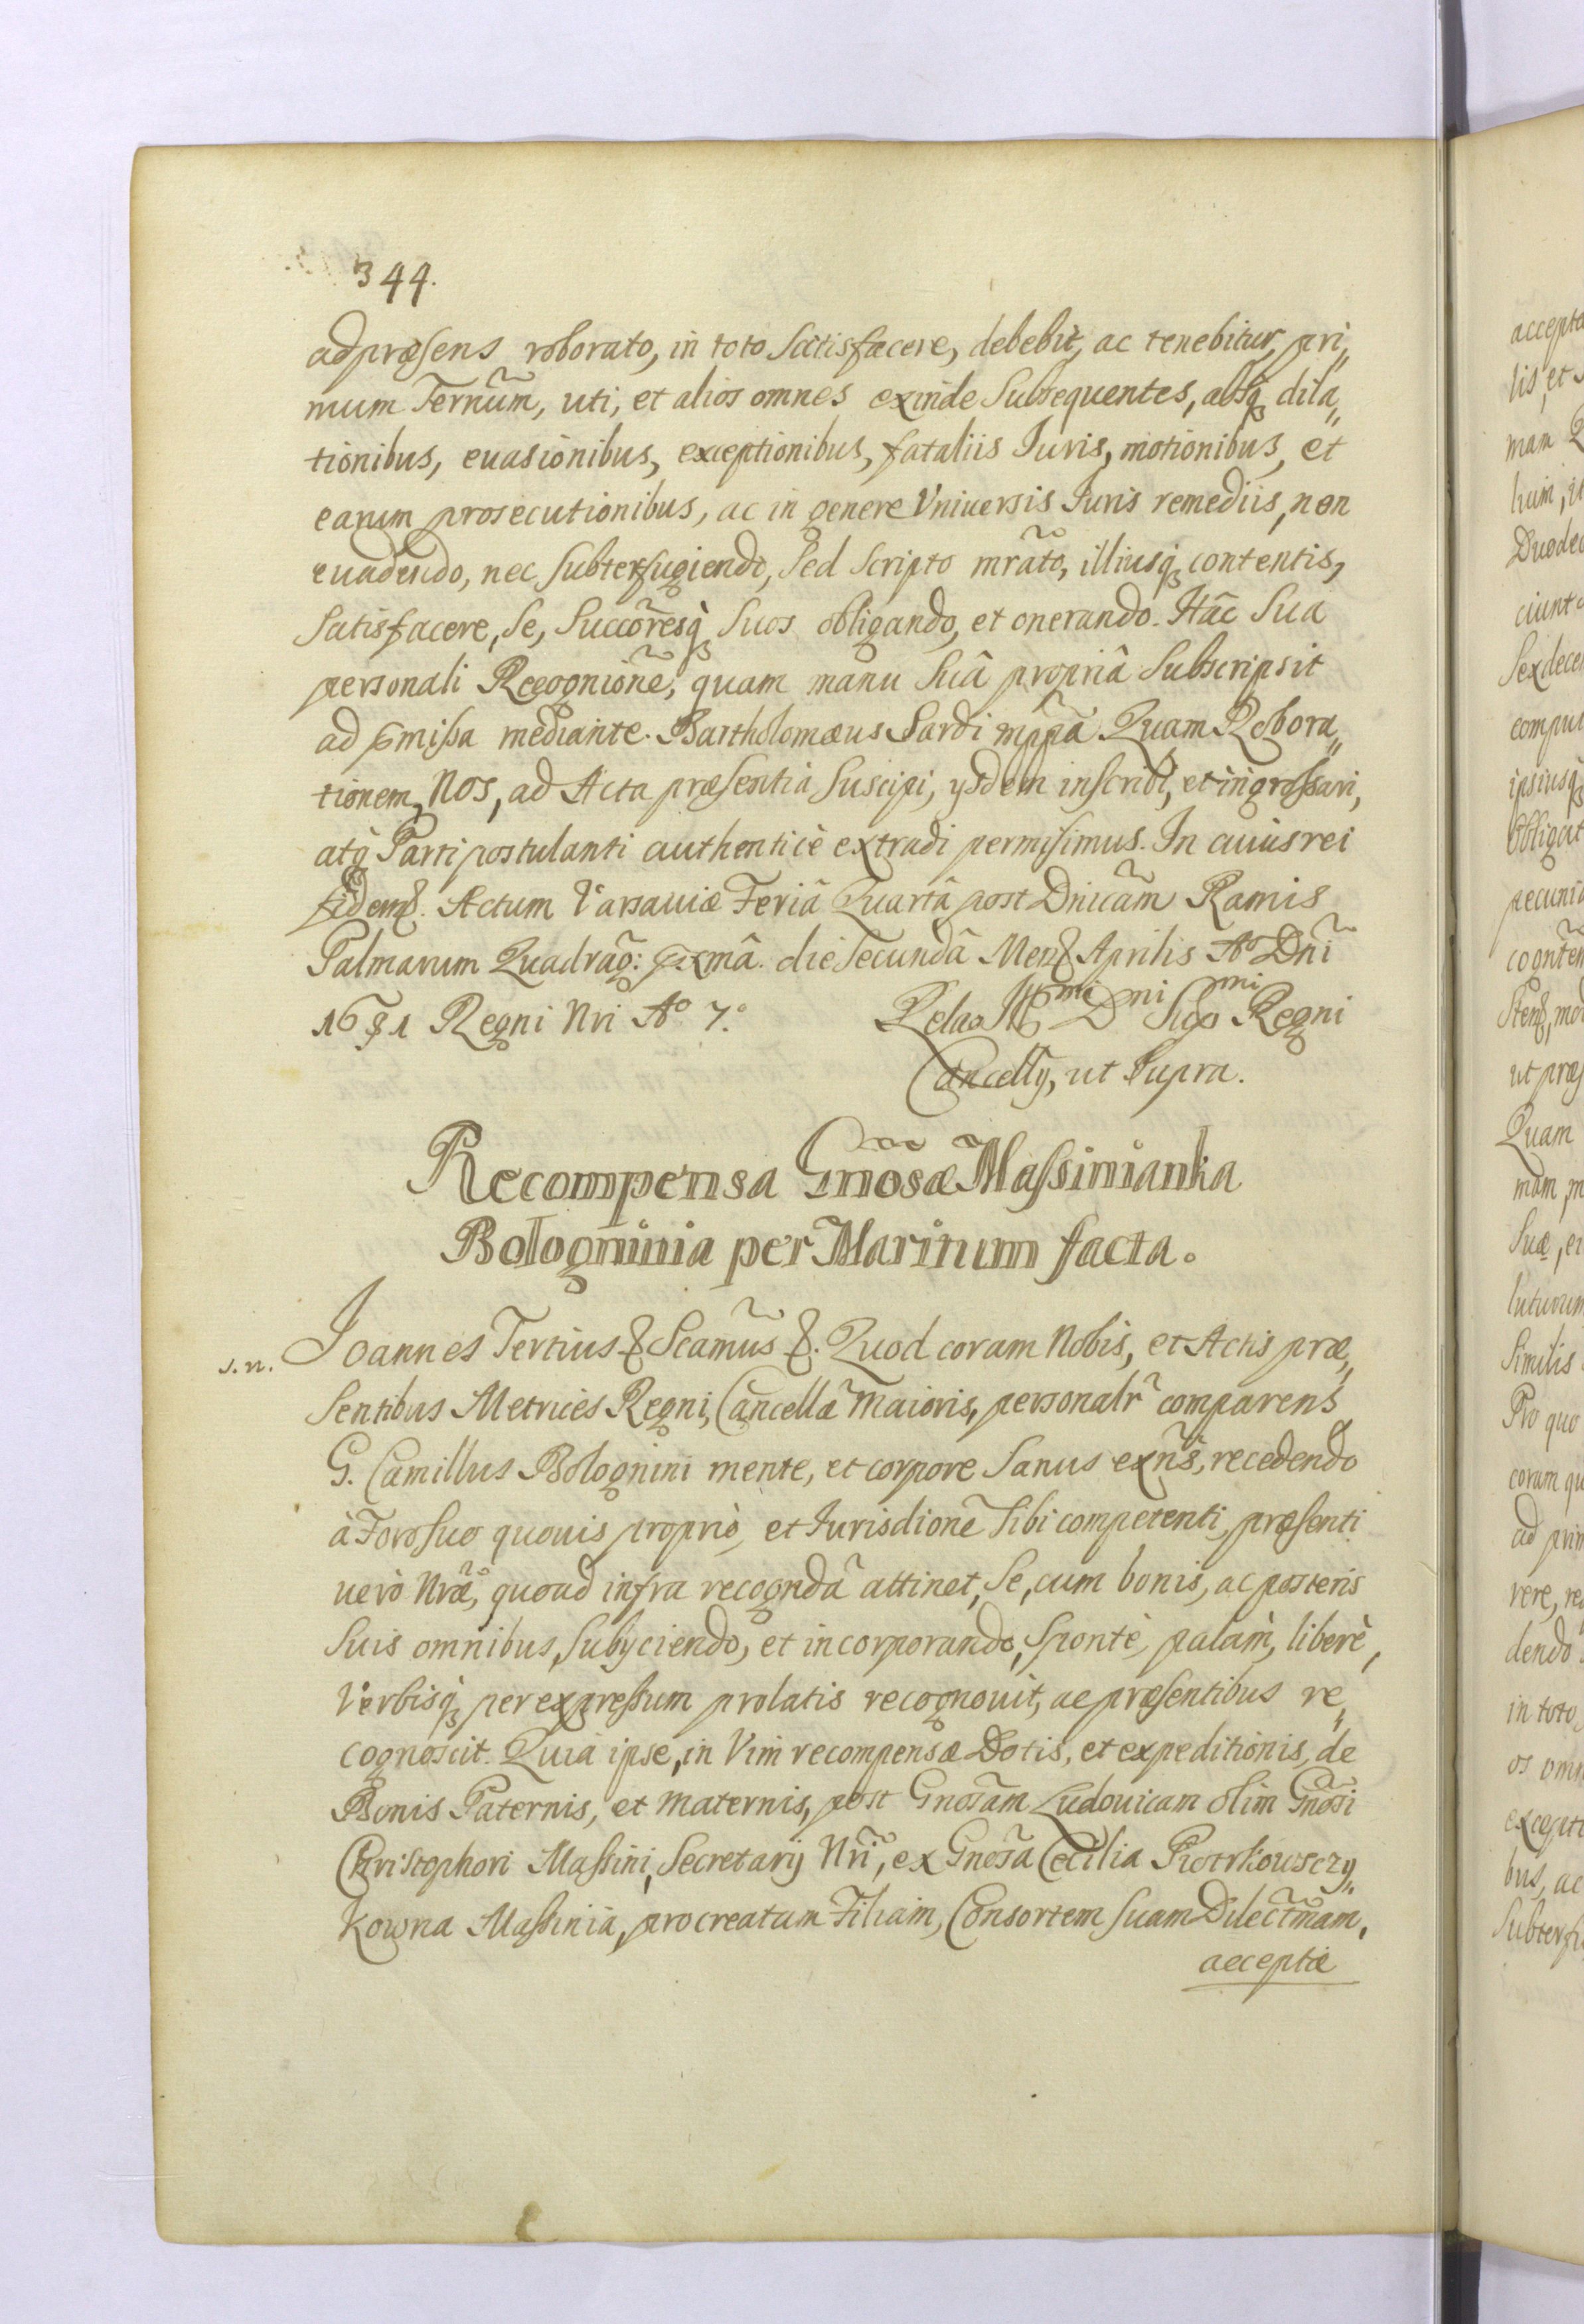 344.
ad præsens roborato, in toto Satisfacere, debebit, ac tenebitur, pri„
mum Terñum, uti, et alios omnes exinde Subsequentes, absq; dila„
tionibus, euasionibus, exceptionibus, fataliis Iuris, motionibus, et
earum prosecutionibus, ac in genere Vniuersis Iuris remediis, non
euadendo, nec Subterfugiendo, Sed Scripto mrãto, illiusq; contentis,
Satisfacere, Se, Succõresq; Suos obligando, et onerando. Hâc Sua
personali Recogniõne, quam manu Suâ propriâ Subscripsit
ad pmissa mediante. Bartholomæus Sardi mppã. Quam Robora„
tionem, Nos, ad Acta præsentia Suscipi, ysdem inscribi, et ingrossari,
atq; Parti postulanti authenticè extradi permisimus. In cuius rei
fidem &. Actum Varsauiæ Feriâ Quartâ post Dnicãm Ramis
Palmarum Quadrãg: die Secundâ Mens Aprilis Aº Dñi
1681 Regni Nri Aº 7.º
Relao Illmi Dni Supmi Regni
Cancellÿ, ut Supra.
Recompensa Gnõsæ Massinianka
Bologninia per Marinum facta.
J. n.
Joannes Tertius & Scam̃us &. Quod coram Nobis, et Actis præ„
Sentibus Metrices Regni, Cancellæ Maioris, personalr̃ comparens
G. Camillus Bolognini mente, et corpore Sanus exñs, recedendo
à Foro Suo quouis proprio, et Iurisdiõne Sibi competenti, præsenti
uerò Nræ̃, quoad infra recogndã attinet, Se, cum bonis, ac posteris
Suis omnibus, Subÿciendo, et incorporando, Spontè, palàm, liberè,
Verbisq; per expressum prolatis recognouit, ac præsentibus re„
cognoscit. Quia ipse, in Vim recompensæ Dotis, et expeditionis, de
Bonis Paternis, et Maternis, post Gnosãm Ludouicam olim Gnõsi
Christophori Massini, Secretarÿ Nrĩ, ex Gnosã Cecilia Piotrkowczy„
kowna Massinia, procreatam Filiam, Consortem Suam Dilectm̃am,
acceptæ